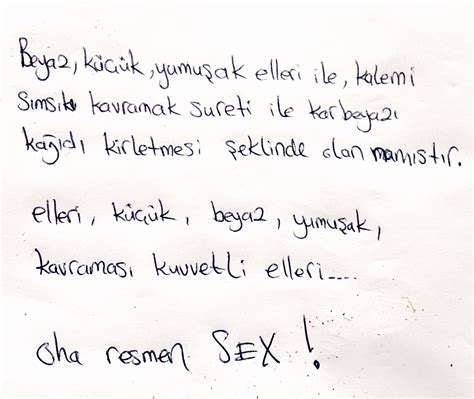 Beyaz, küçük, yumuşak elleri ile, kalemi
sımsıkı kavramak sureti ile karbeyazı
kağıdı kirletmesi şeklinde olan mamıştır.
elleri, küçük, beyaz, yumuşak,
kavraması kuvvetli elleri....
oha resmen SEX !